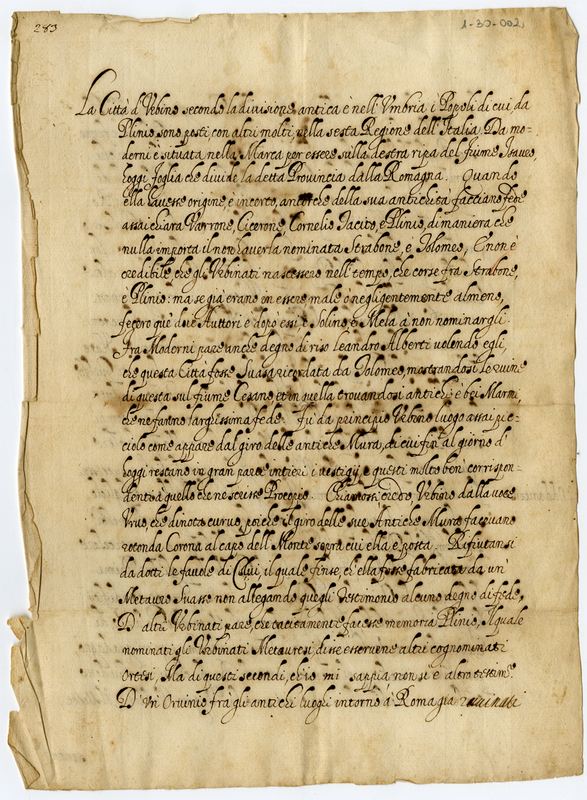 283
1-30-002
La Città d'Vrbino secondo la divisione antica è nell'Vmbria i Popoli di cui da
Plinio sono posti con altri molti, nella sesta Regione dell'Italia. Da mo=
derni è situata nella Marca per essere sulla destra ripa del fiume Isauro,
hoggi foglia che divide la detta Provincia dalla Romagna. Quando
ella havesse origine, è incerto, ancorche della sua antichità facciano fede
assai chiara Varrone, Cicerone, Cornelio Tacito, e Plinio, di maniera che
nulla importa il non haverla nominata Strabone, e Tolomeo, E non è
credibile che gli Vrbinati nascessero nell tempo, che corse fra Strabone,
e Plinio: ma se già erano in essere male o negligentemente almeno,
fecero que' due Auttori e dopò essi e Solino, e Mela à non nominargli.
Fra Moderni pare anche degno di riso leandro Alberti volendo egli,
che questa Città fosse Suasa ricordata da Tolomeo, mostrandosi le ruine
di questa sul fiume Cesano, et in quella trovandosi antichi e bei Marmi,
che ne fanno larghissima fede. Fù da principio Vrbino luogo assai pic=
ciolo come appare dal giro delle antiche Mura, di cui fin' al giorno d'
hoggi restano in gran parte intieri i vestigij, e questi molto ben' corrispon=
denti à quello che ne scrisse Procopio. Chiamossi Vrbino dalla voce
Vruo che dinota curuo, poiche il giro delle sue Antiche Mura facevano
rotonda Corona al capo dell Monte sopra cui ella è posta. Rifiutansi
da dotti le favole di il quale finse, ch'ella fosse fabricata da un'
Metauro Suasso non allegando quegli testimonio alcuno degno di fede.
D' altri Vrbinati pare che tacitamente facesse memoria Plinio, Il quale
nominati gli Vrbinati Metauresi disse esservene altri cognominati
Ortesi, Ma di questi secondi, ch'io mi sappia non si è altro
D' Vn' Orvinio frà gli antichi luoghi intorno à Roma già